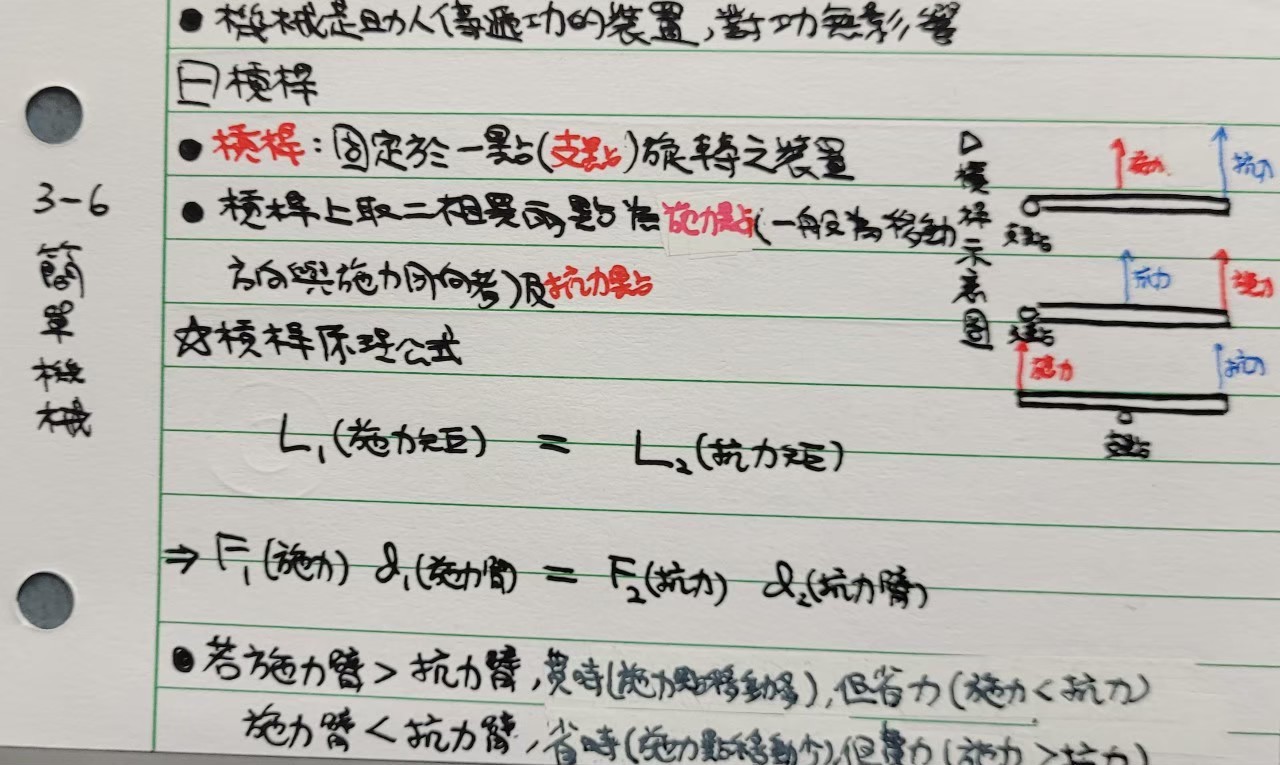 3-6
簡單機械
●機械是助人傳遞功的裝置,對功無影響
曰槓桿
●槓桿:固定於一點(支點)旋轉之裝置
●槓桿上取二相異兩點為施力點(一般為移動
方向與施力同向者)及抗力點
☆槓桿原理公式
L₁(施力矩) = L₂(抗力矩)
⇒ F₁(施力) d₁(施力臂) = F₂(抗力) d₂(抗力臂)
●若施力臂>抗力臂,費時(施力點移動多),但省力(施力<抗力)
施力臂<抗力臂,省時(施力點移動少),但費力(施力>抗力)
▷槓桿示意圖
施力 抗力
支點
抗力 施力
支點
施力 抗力
支點